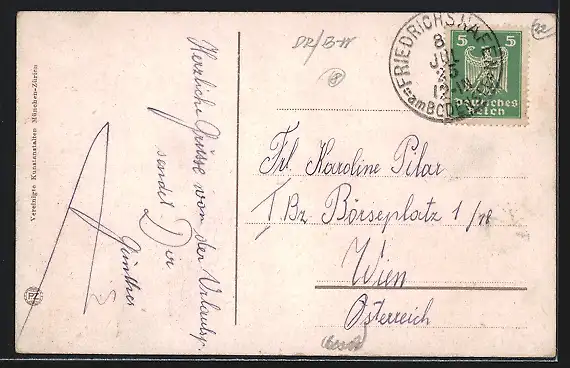 Vereinigte Kunstanstalten München-Zürich
PZ
Herzliche Grüsse von der Urlaubsr.
sendet Dir
Günther
DR/B-W
8
22
FRIEDRICHSHAFEN
8
JUL
25
12-
am BODENSEE
5 5
Deutsches
Reich
Frl. Karoline Pilar
I Bz Börseplatz 1/18
Wien
Österreich